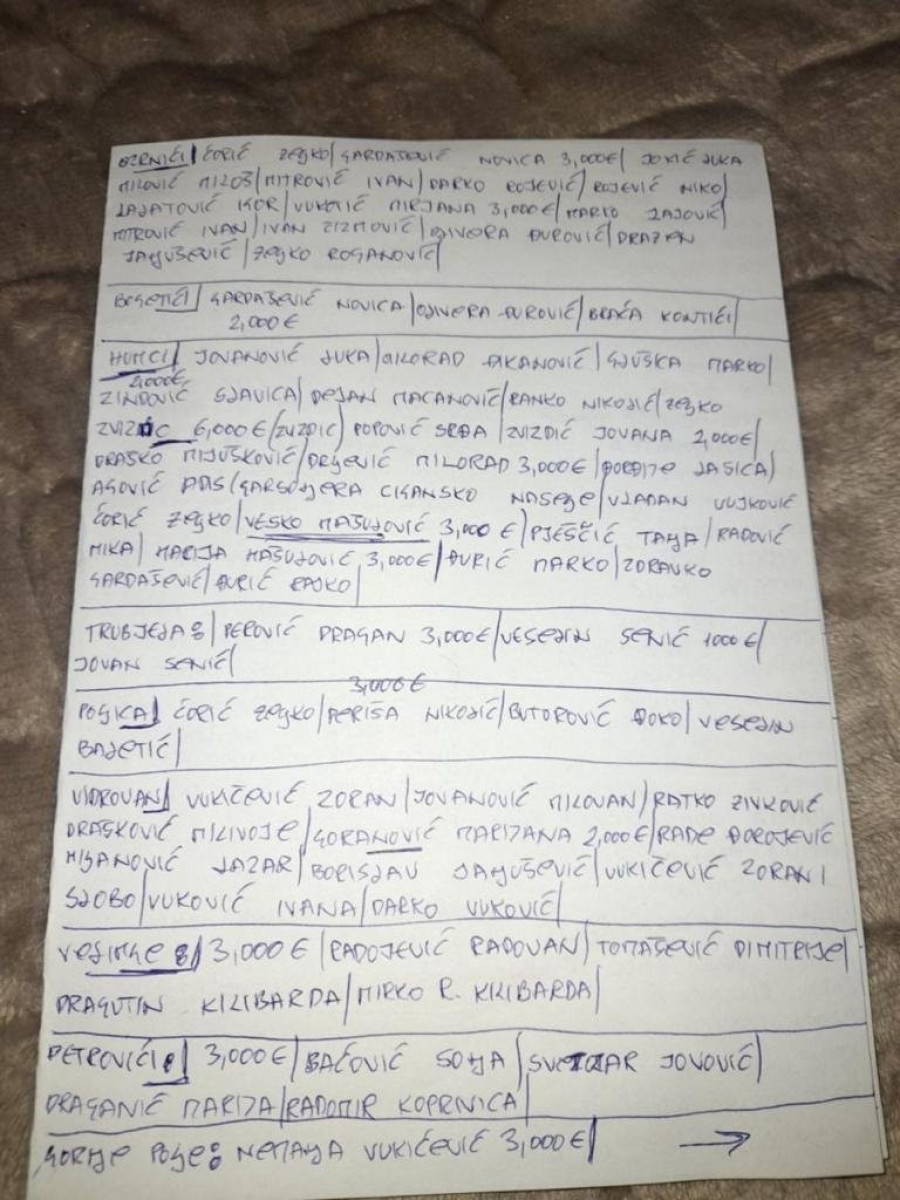 OZRNIĆI/ ĆORIĆ ZEJKO/GARDAŠEVIĆ NOVICA 3,000€/ JOKIĆ LUKA
MILOVIĆ MILOŠ/MITROVIĆ IVAN/DARKO ROJEVIĆ/ROJEVIĆ NIKO/
LAJATOVIĆ IGOR/VUKOTIĆ MIRJANA 3,000€/MARKO LAJOVIĆ/
MITROVIĆ IVAN/IVAN ZIZMOVIĆ/OLIVERA ĐUROVIĆ/DRAZEN
JANJUŠEVIĆ/ZEJKO ROGANOVIĆ/
BRŠETIĆI/ GARDAŠEVIĆ NOVICA/OLIVERA ĐUROVIĆ/BRAĆA KONTIĆI/
2,000€
HUMCI/ JOVANOVIĆ LUKA/MILORAD ĐIKANOVIĆ/GLUŠKA MARKO/
2,000€
ZINDOVIĆ SLAVICA/DEJAN MACANOVIĆ/RANKO NIKOLIĆ/ZEJKO
ZVIZDIC 6,000€/ZVIZDIC/POPOVIĆ SRĐA/ZVIZDIĆ JOVANA 2,000€/
DRAŠKO MIJUŠKOVIĆ/DRLJEVIĆ MILORAD 3,000€/ĐORĐIJE LASICA/
AGOVIĆ ADIS/GARSONJERA CIGANSKO NASELJE/VLADAN VUJKOVIĆ
ĆORIĆ ZEJKO/VESKO MAŠULOVIĆ 3,000€/PJEŠČIĆ TANJA/RADOVIĆ
MIKA/MARIJA MAŠULOVIĆ 3,000€/ĐURIĆ MARKO/ZDRAVKO
GARDAŠEVIĆ/ĐURIĆ RAJKO/
TRUBJELA:/PEROVIĆ DRAGAN 3,000€/VESELIN SENIĆ 1000€/
JOVAN SENIĆ/
3,000€
POLJICA/ ĆORIĆ ZEJKO/PERIŠA NIKOLIĆ/BUTOROVIĆ ĐOKO/VESELIN
BALETIĆ/
VIDROVAN/ VUKIČEVIĆ ZORAN/JOVANOVIĆ MILOVAN/RATKO ZIVKOVIĆ
DRAŠKOVIĆ MILIVOJE/GORANOVIĆ MARIJANA 2,000€/RADE ĐOROJEVIĆ
MIJANOVIĆ LAZAR/BORISLAV JANJUŠEVIĆ/VUKIČEVIĆ ZORAN I
SLOBO/VUKOVIĆ IVANA/DARKO VUKOVIĆ/
VELIMLJE:/ 3,000€/RADOJEVIĆ RADOVAN/TOMAŠEVIĆ DIMITRIJE/
DRAGUTIN KILIBARDA/MIRKO R. KILIBARDA/
PETROVIĆI:/ 3,000€/BAĆOVIĆ SONJA/SVETOZAR JOVOVIĆ/
DRAGANIĆ MARIJA/RADOMIR KOPRIVICA/
GORNJE POLJE: NEMANJA VUKIČEVIĆ 3,000€/ →